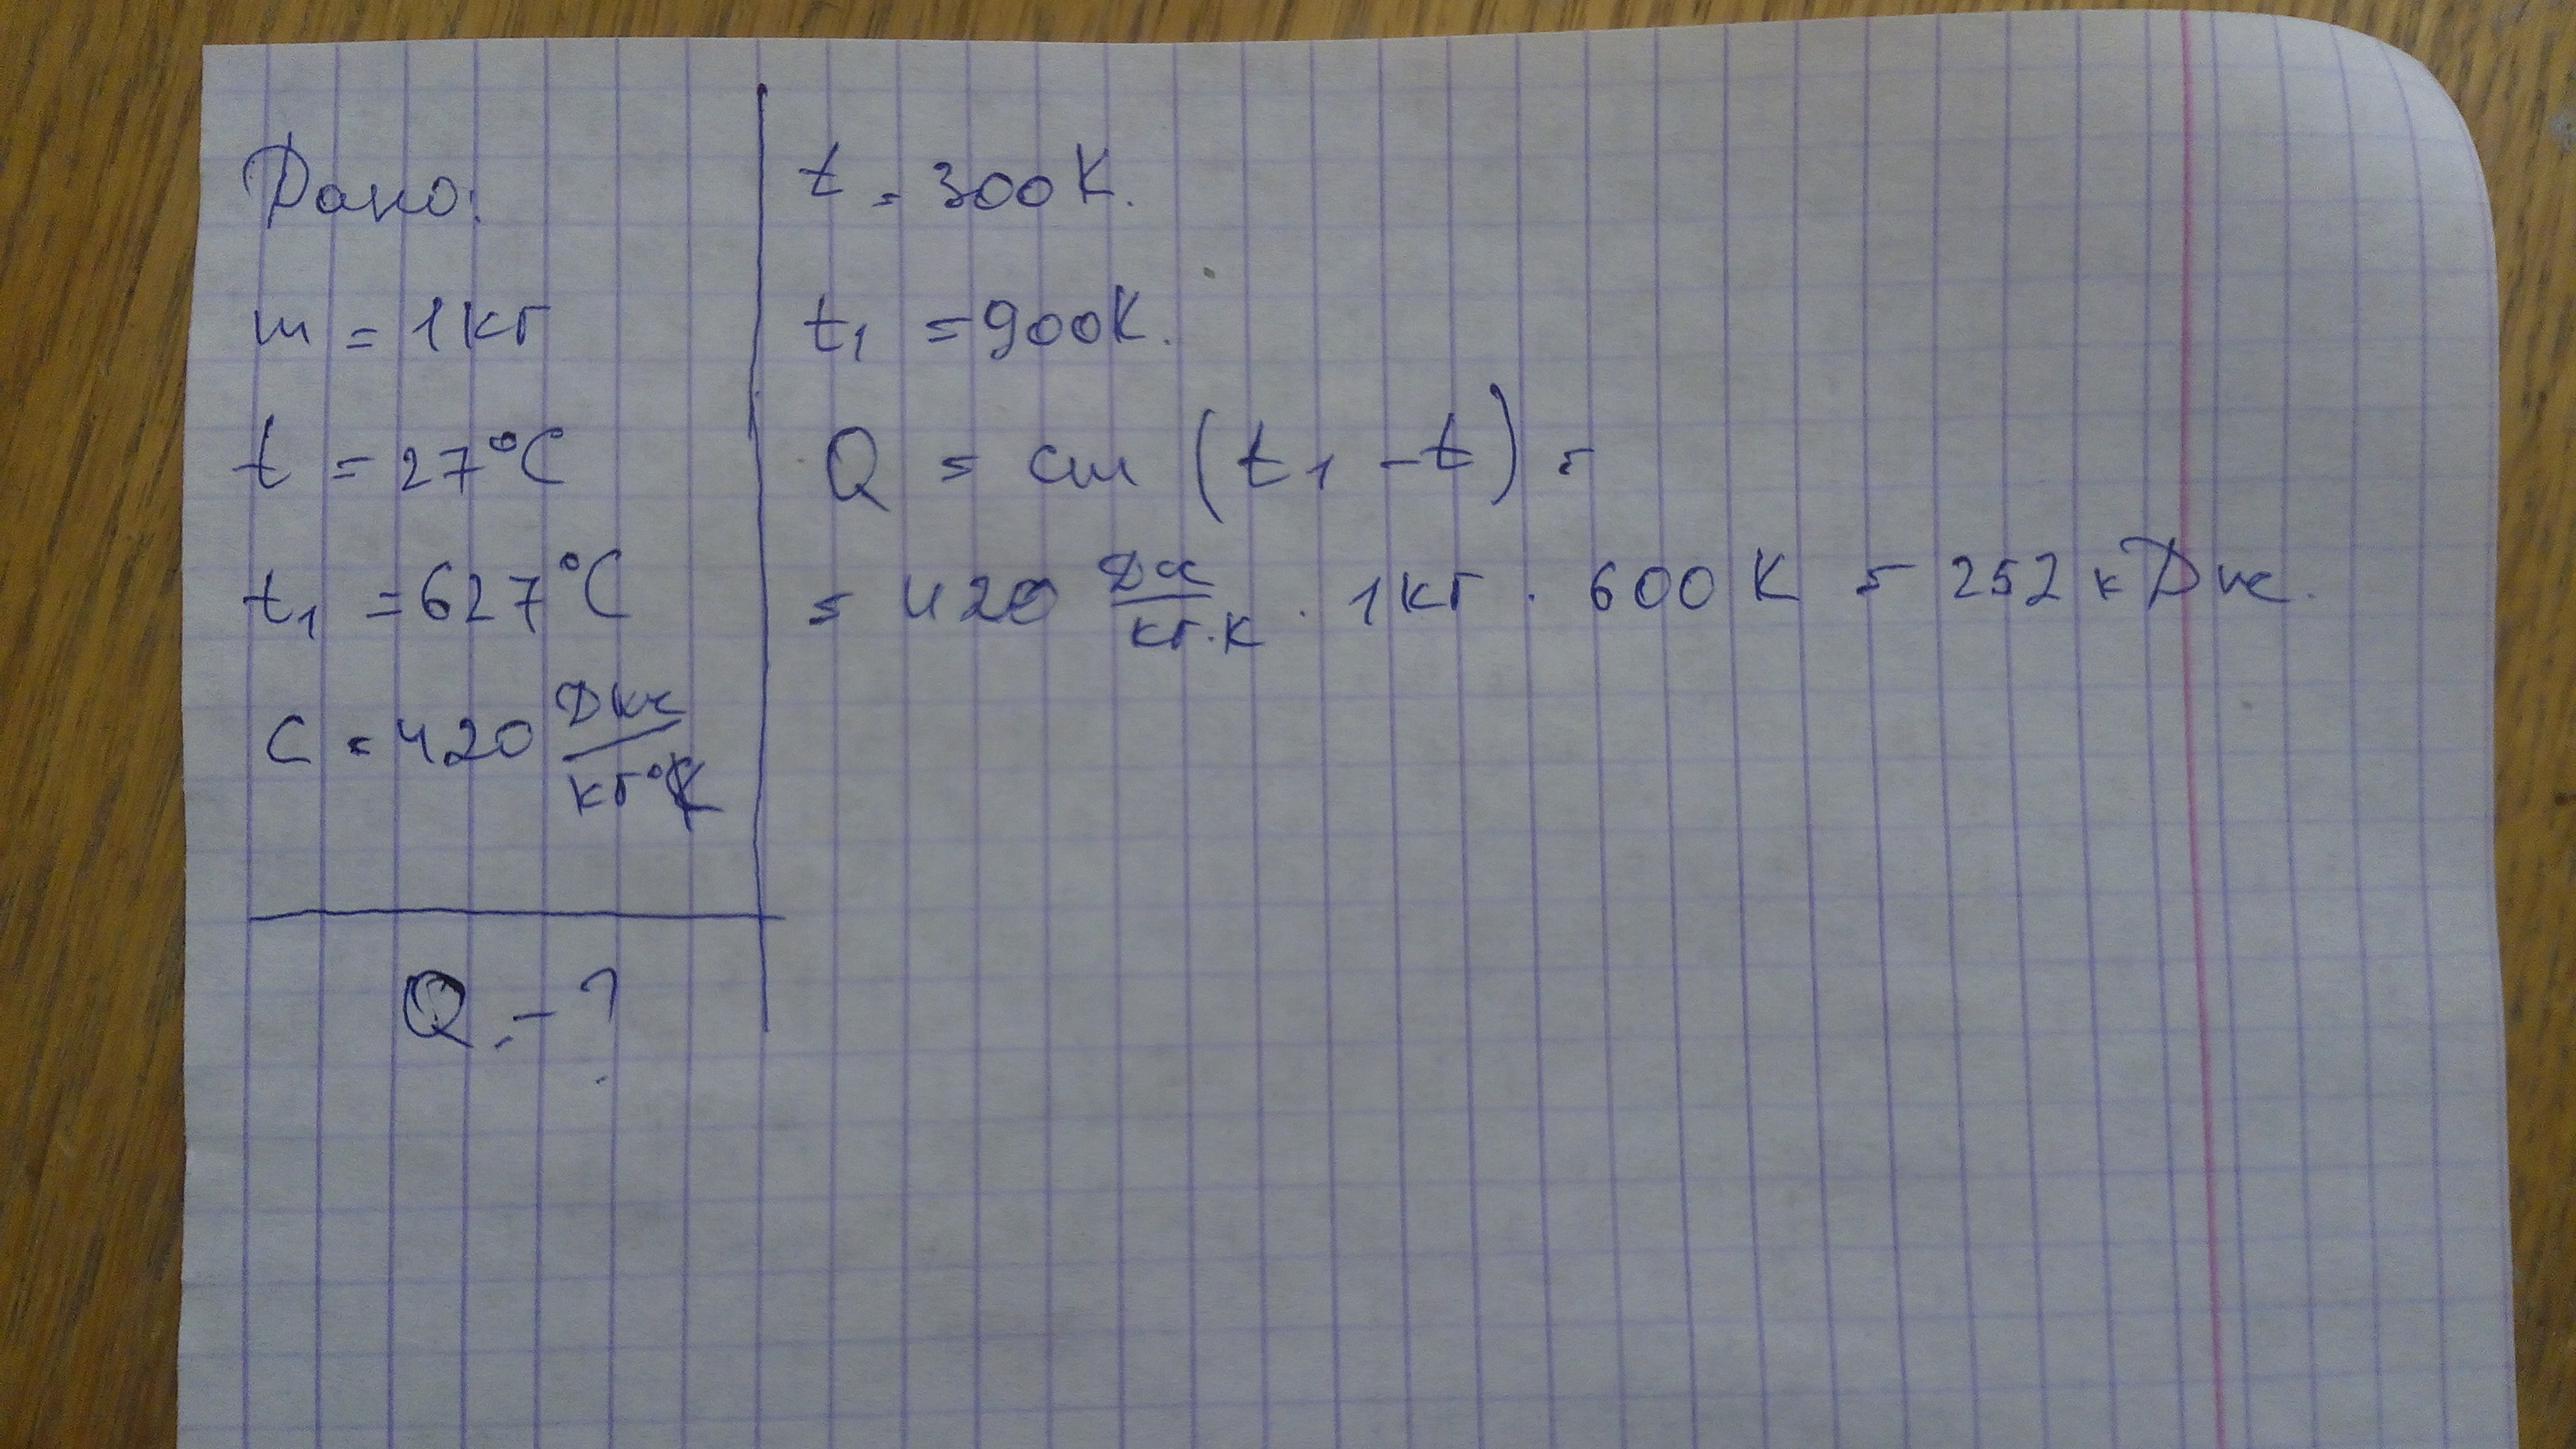 Дано:
m = 1кг
t = 27°C
t₁ = 627°C
C = 420 Дж/кг°К
Q - ?
t = 300К.
t₁ = 900К.
Q = cm (t₁ - t) =
= 420 Дж/кг·К · 1кг · 600 К = 252 кДж.